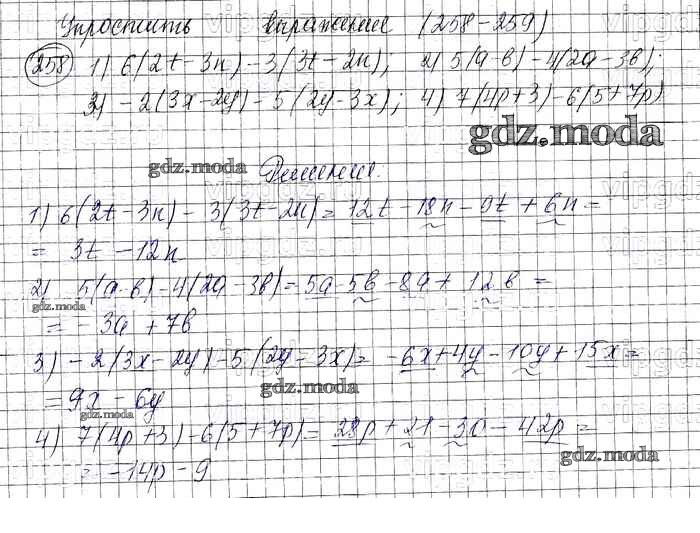 Упростить выражение (258-259)
258 1) 6(2t-3n)-3(3t-2n); 2) 5(a-b)-4(2a-3b);
3) -2(3x-2y)-5(2y-3x); 4) 7(4p+3)-6(5+7p)
gdz.moda
gdz.moda Решение.
1) 6(2t-3n)-3(3t-2n)=12t-18n-9t+6n=
= 3t-12n
2) 5(a-b)-4(2a-3b)=5a-5b-8a+12b=
gdz.moda
= -3a+7b
3) -2(3x-2y)-5(2y-3x)= -6x+4y-10y+15x=
gdz.moda
= 9x-6y
gdz.moda
4) 7(4p+3)-6(5+7p)=28p+21-30-42p=
gdz.moda
= -14p-9